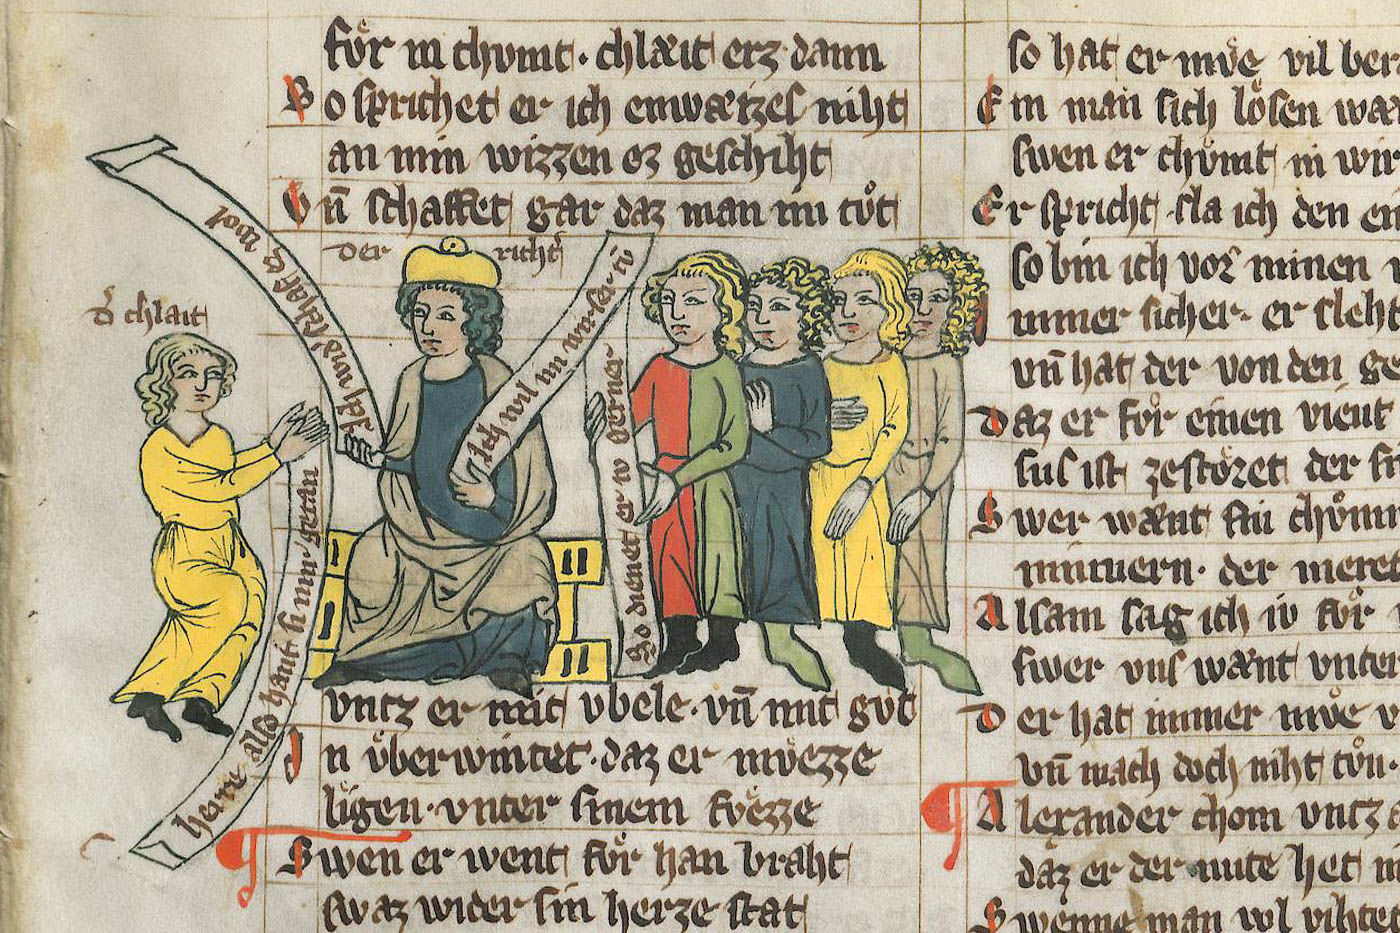 foͤr in chvmt · chlæit erz dann
So sprichet er ich enwæizes niht
an min wizzen ez geschiht
Vn̄ schaffet gar daz man im tuͦt
der richt͛
d͛ chlait
Ich van dir schaf d͛ wol
Ich wil im
herre also hant si mir getan
So dienet er iv gerner
vntz er mit vbele · vn̄ mit guͦt
In vͤberwintet · daz er mvͤezze
ligen · vnter sinem fvͤezze
Swen er went foͤr han braht
swaz wider sin herze stat
so hat er mvͤe vil
Ein man sich loͤsen
swen er chvͤmt in
Er spricht · sla ich den
so bin ich vor minen
immer sicher · er
vn̄ hat der von den
Daz er foͤr einen vient
sus ist zestoͤret der
Swer wænt sin
minnern · der
Alsam sag ich iv foͤr
swer vns wænt
Der hat immer mvͤe
vn̄ mach doch niht tvͦn ·
Alexander chom vntz
daz er der mite het
Swenne man vol